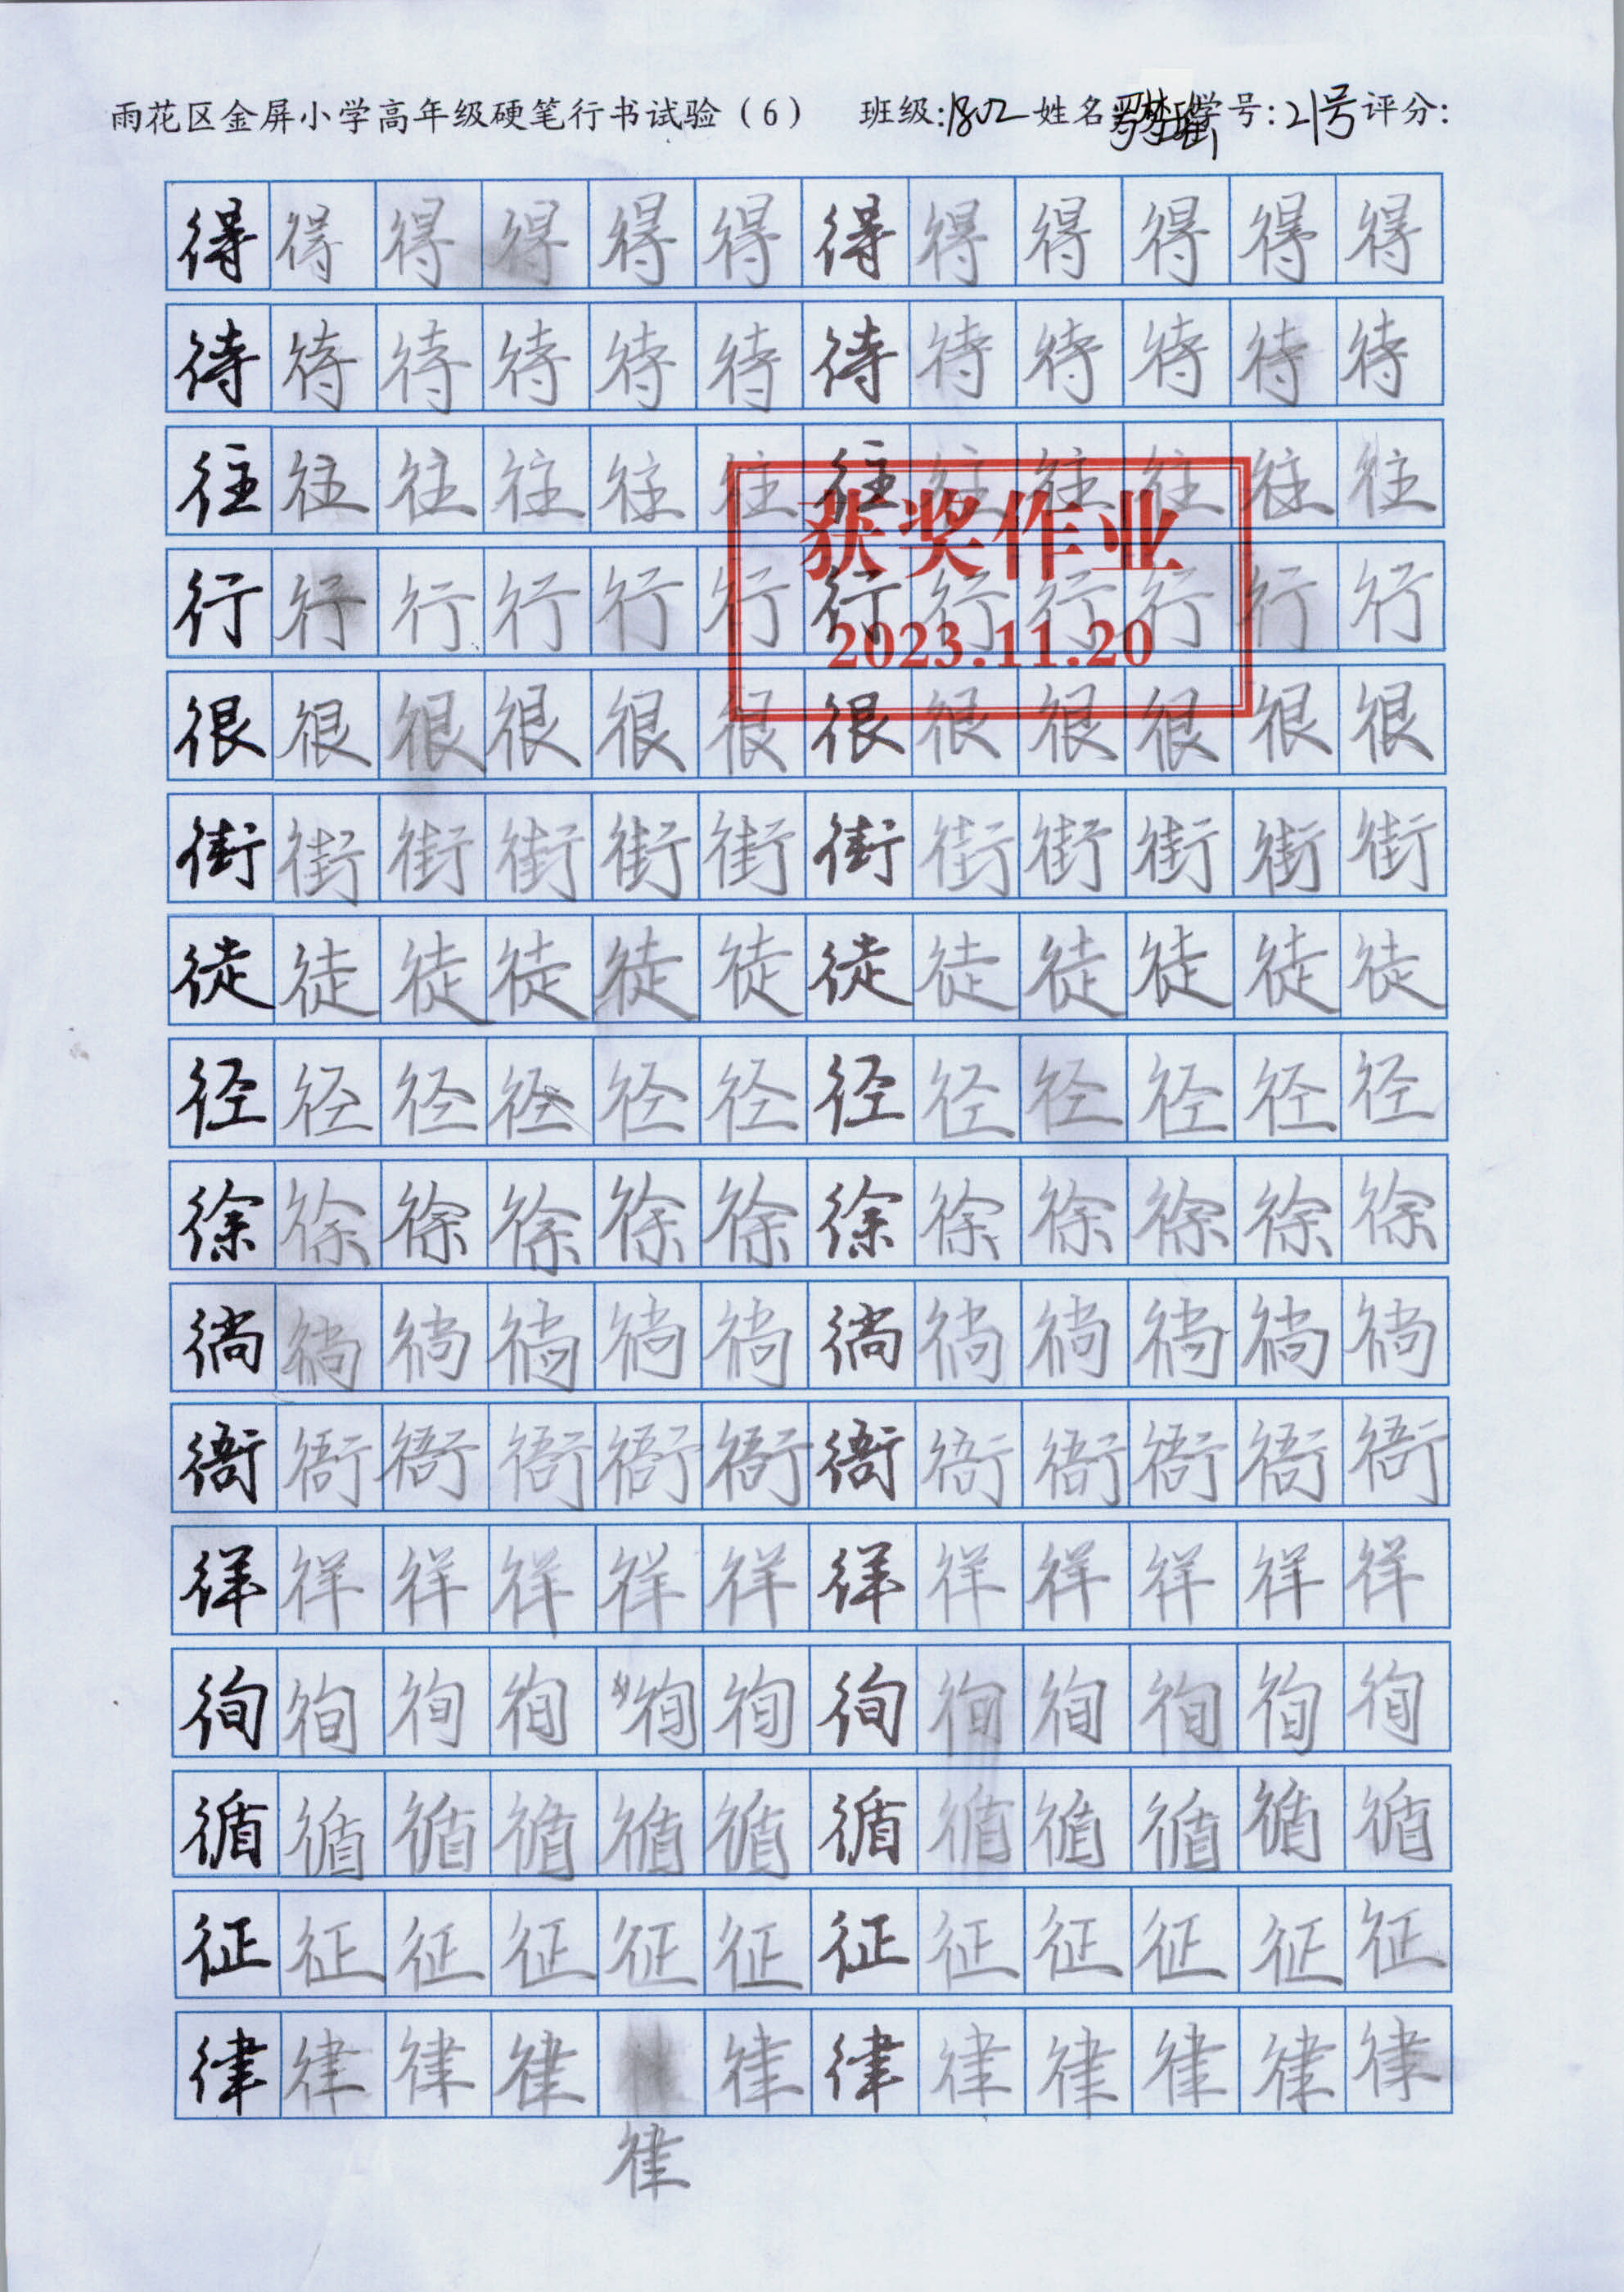 雨花区金屏小学高年级硬笔行书试验（6） 班级:1802 姓名 学号:21号 评分:
得得得得得得得得得得得得
待待待待待待待待待待待待
往往往往往往往往往往往往
获奖作业
行行行行行行行行行行行行
2023.11.20
很很很很很很很很很很很很
街街街街街街街街街街街街
徒徒徒徒徒徒徒徒徒徒徒徒
径径径径径径径径径径径径
徐徐徐徐徐徐徐徐徐徐徐徐
徜徜徜徜徜徜徜徜徜徜徜徜
衙衙衙衙衙衙衙衙衙衙衙衙
徉徉徉徉徉徉徉徉徉徉徉徉
徇徇徇徇徇徇徇徇徇徇徇徇
循循循循循循循循循循循循
征征征征征征征征征征征征
律律律律律律律律律律律
律